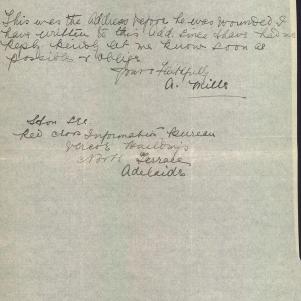 This was the address before he was wounded I
have written to this add. since & have had no
reply kindly let me know soon as
possible & oblige
Yours Faithfully
A. Mills
Hon Sec
Red Cross Information Bureau
Verco's Buildings
North Terrace
Adelaide